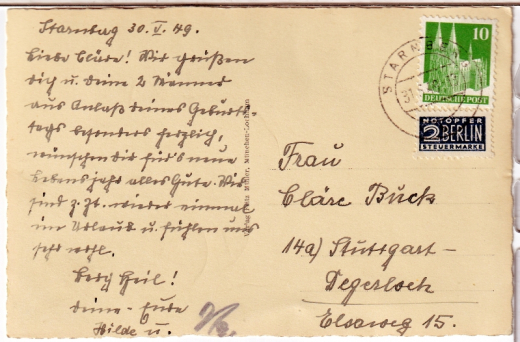 Starnberg 30.V.49.
Liebe Cläre! Wir grüßen
dich u. deine 2 Männer
aus Anlaß deines Geburts-
tags besonders herzlich,
wünschen dir für's neue
Lebensjahr alles Gute. Wir
sind z. Zt. wieder einmal
im Urlaub u. fühlen uns
sehr wohl.
Berg Heil!
deine
Hilde u.
STARNBE
31.5
10
DEUTSCHE POST
NOTOPFER
2 BERLIN
STEUERMARKE
Frau
Cläre Buck
14a) Stuttgart-
Degerloch
Elsaweg 15.